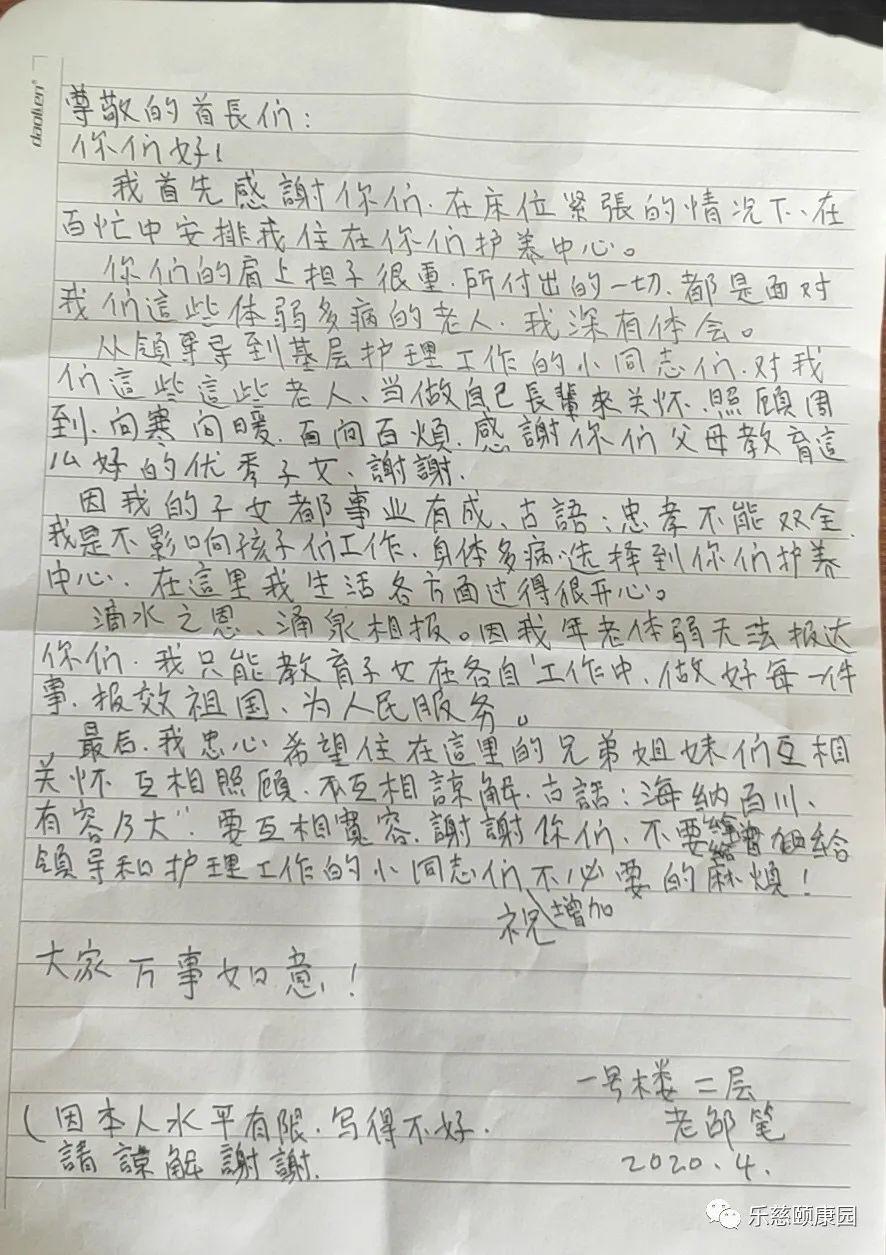 daolen
尊敬的首長们：
你们好！
我首先感謝你们.在床位紧張的情况下、在
百忙中安排我住在你们护养中心。
你们的肩上担子很重.所付出的一切.都是面对
我们這些体弱多病的老人.我深有体会。
从領导导到基层护理工作的小同志们.对我
们這些這些老人、当做自己長輩來关怀.照顧周
到.问寒问暖.百问百煩.感謝你们父母教育這
么好的优秀子女、謝謝.
因我的子女都事业有成、古語：忠孝不能双全.
我是不影响孩子们工作、身体多病.选择到你们护养
中心.在這里我生活各方面过得很开心。
滴水之恩、涌泉相报。因我年老体弱无法报达
你们.我只能教育子女在各自工作中.做好每一件
事.报效祖国、为人民服务。
最后.我忠心希望住在這里的兄弟姐妹们互相
关怀 互相照顧.互相諒解.古話：海納百川、
有容乃大".要互相寬容.謝謝你们、不要給
領导和护理工作的小同志们增加不必要的麻煩！
祝
大家万事如意！
一号楼二层
老邹笔
2020.4.
（因本人水平有限.写得不好.
請諒解謝謝.
乐慈颐康园